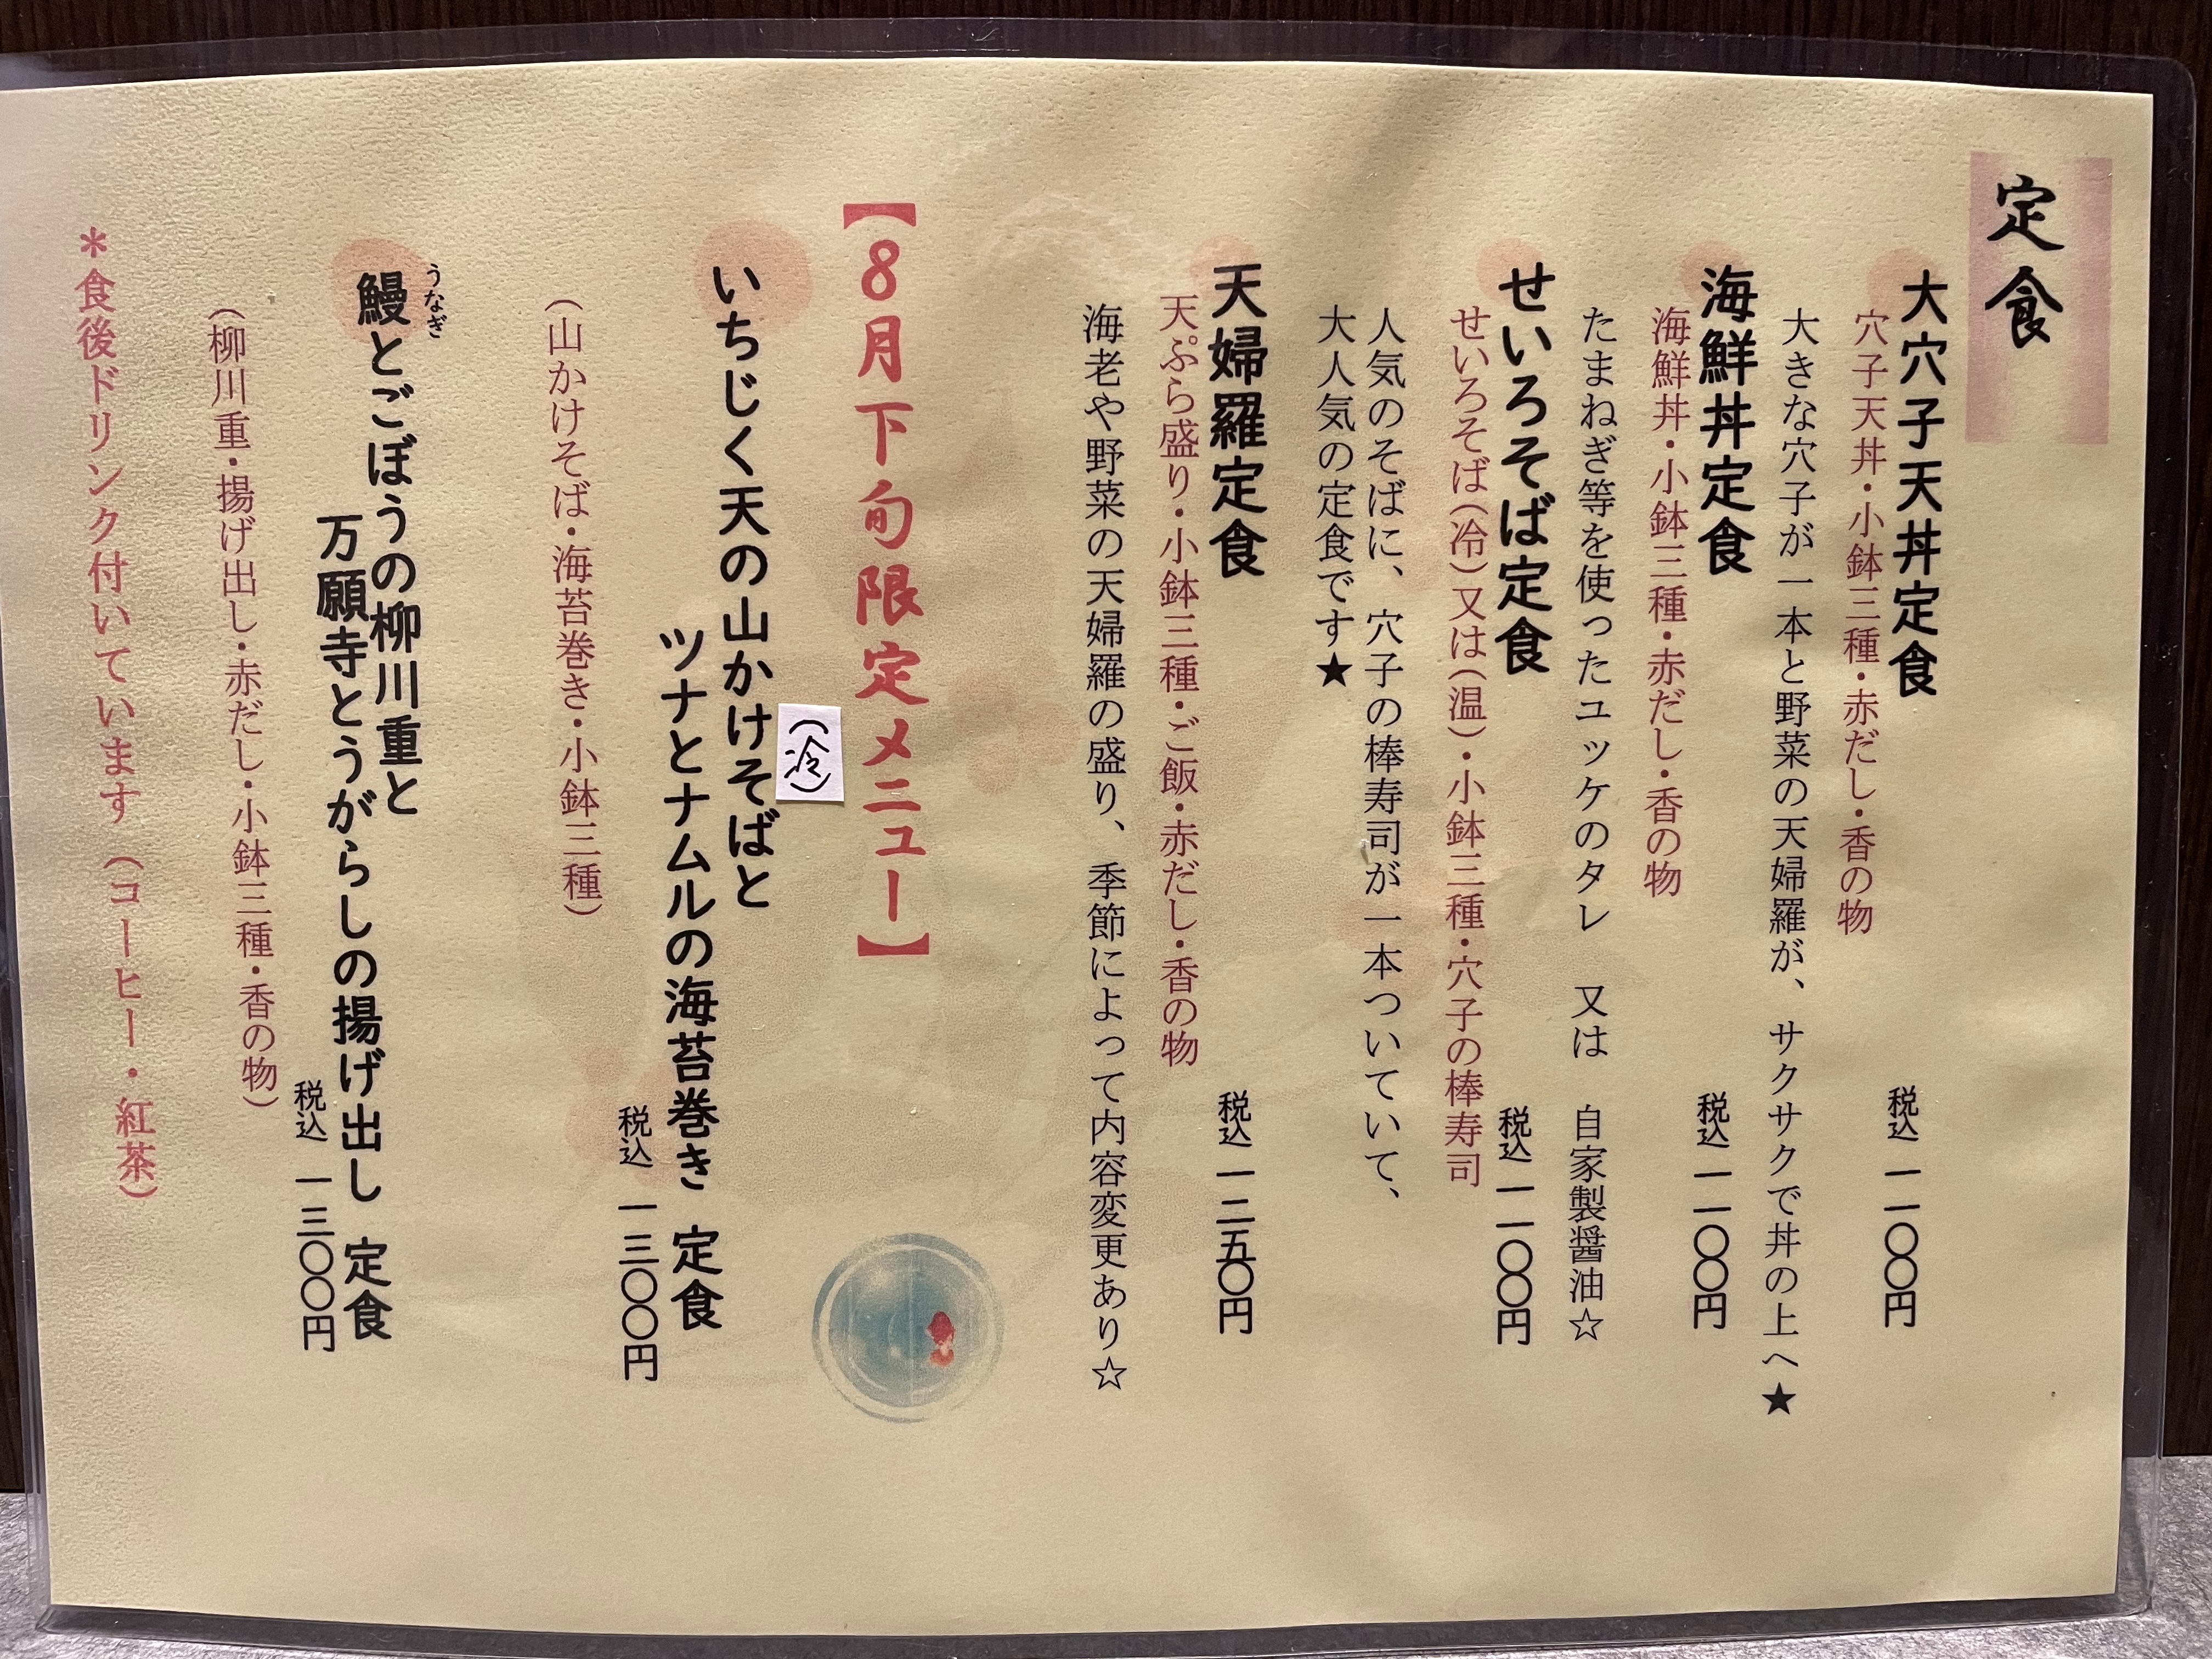 定食
大穴子天丼定食
税込 一一〇〇円
穴子天丼・小鉢三種・赤だし・香の物
大きな穴子が一本と野菜の天婦羅が、サクサクで丼の上へ★
海鮮丼定食
税込 一一〇〇円
海鮮丼・小鉢三種・赤だし・香の物
たまねぎ等を使ったユッケのタレ 又は 自家製醤油☆
せいろそば定食
税込 一一〇〇円
せいろそば(冷)又は(温)・小鉢三種・穴子の棒寿司
人気のそばに、穴子の棒寿司が一本ついていて、
大人気の定食です★
天婦羅定食
税込 一二五〇円
天ぷら盛り・小鉢三種・ご飯・赤だし・香の物
海老や野菜の天婦羅の盛り、季節によって内容変更あり☆
【8月下旬限定メニュー】
(冷)
いちじく天の山かけそばと
ツナとナムルの海苔巻き 定食
税込 一三〇〇円
(山かけそば・海苔巻き・小鉢三種)
うなぎ
鰻とごぼうの柳川重と
万願寺とうがらしの揚げ出し 定食
税込 一三〇〇円
(柳川重・揚げ出し・赤だし・小鉢三種・香の物)
*食後ドリンク付いています (コーヒー・紅茶)